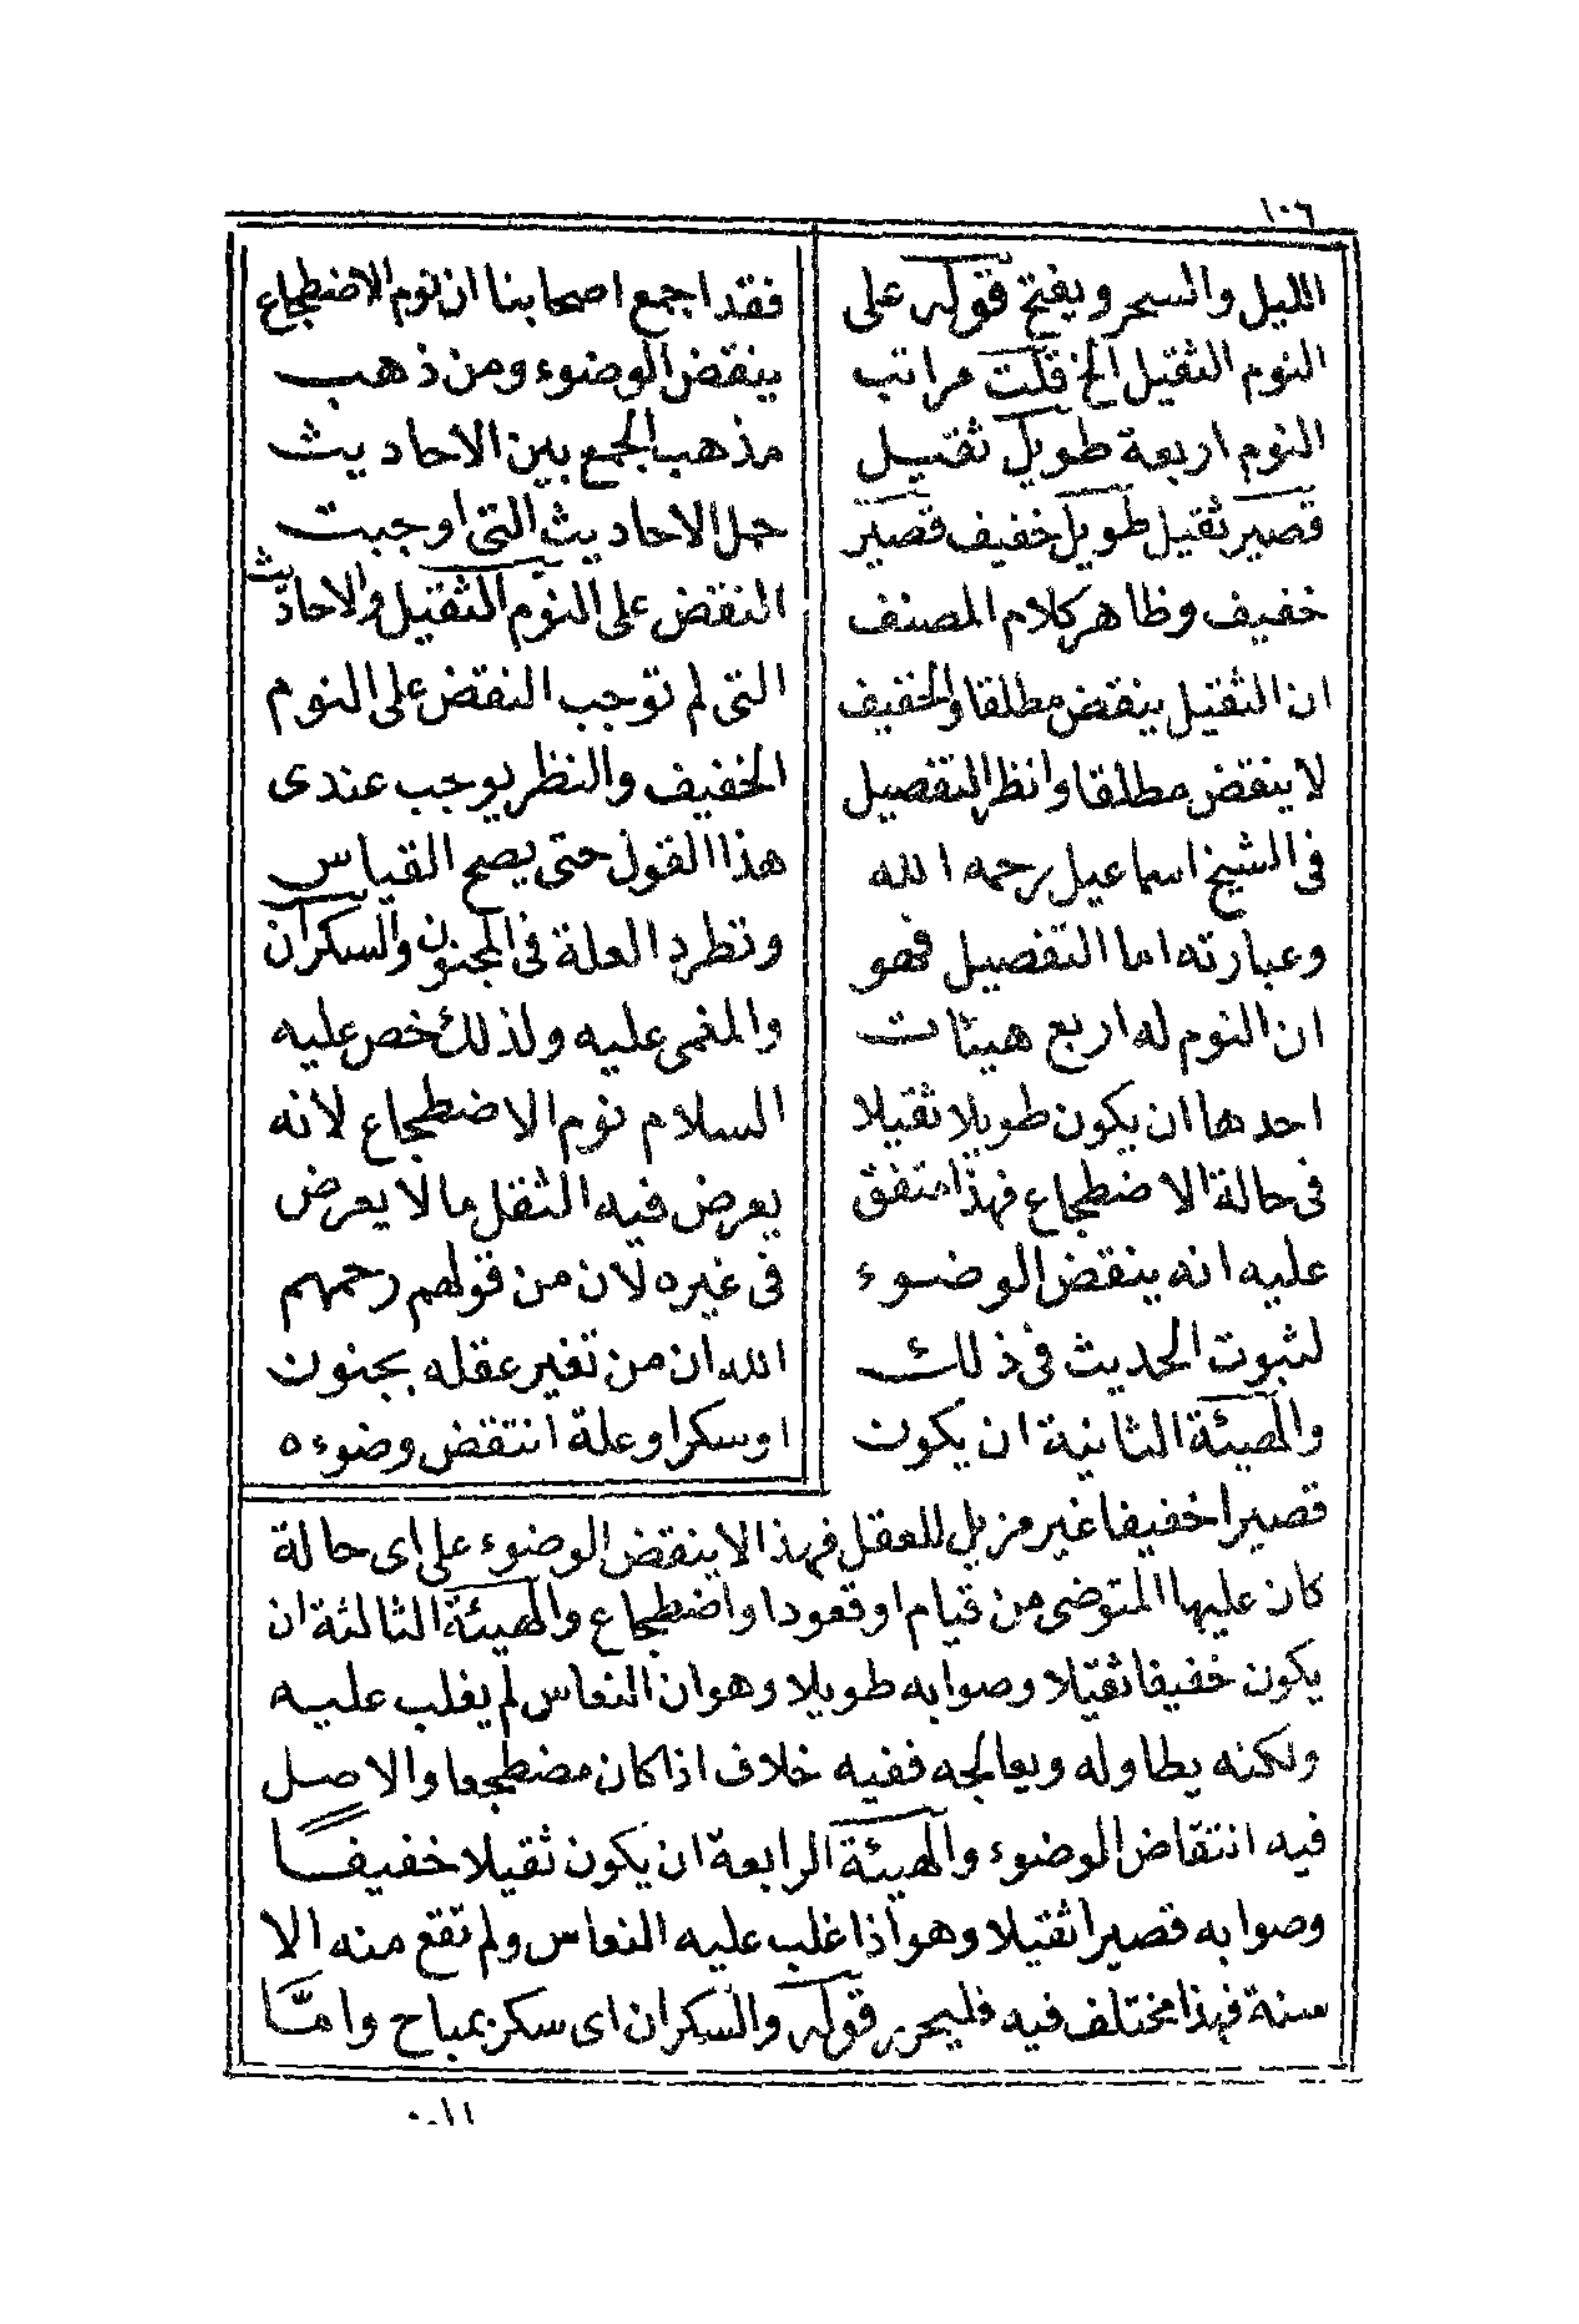 ١٠٦
الليل والسحر ويفتح قوله على
النوم الثقيل الخ قلت مراتب
النوم اربعة طويل ثقيل
قصير ثقيل طويل خفيف قصير
خفيف وظاهر كلام المصنف
ان الثقيل ينقض مطلقا والخفيف
لا ينقض مطلقا وانظر التفصيل
فى الشيخ اسماعيل رحمه الله
وعبارته اما التفصيل فهو
ان النوم له اربع هيئات
احدها ان يكون طويلا ثقيلا
فى حالة الاضطجاع فهذا متفق
عليه انه ينقض الوضوء
لثبوت الحديث فى ذلك
والهيئة الثانية ان يكون
فقد اجمع اصحابنا ان نوم الاضطجاع
ينقض الوضوء ومن ذهب
مذهب الجمع بين الاحاديث
حمل الاحاديث التى اوجبت
النقض على النوم الثقيل والاحاديث
التى لم توجب النقض على النوم
الخفيف والنظر يوجب عندى
هذا القول حتى يصح القياس
وتطرد العلة فى المجنون والسكران
والمغمى عليه ولذلك خص عليه
السلام نوم الاضطجاع لأنه
يعرض فيه الثقل ما لا يعرض
فى غيره لان من قولهم رحمهم
الله ان من تغير عقله بجنون
اوسكر اوعلة انتقض وضوءه
قصيرا خفيفا غير مزيل للعقل فهذا لا ينقض الوضوء على اى حالة
كان عليها المتوضى من قيام اوقعود او اضطجاع والهيئة الثالثة ان
يكون خفيفا ثقيلا وصوابه طويلا وهو ان النعاس لم يغلب عليه
ولكنه يطاوله ويعالجه ففيه خلاف اذا كان مضطجعا والاصل
فيه انتقاض الوضوء والهيئة الرابعة ان يكون ثقيلا خفيفا
وصوابه قصيرا ثقيلا وهو اذا غلب عليه النعاس ولم تقع منه الا
سنة فهذا مختلف فيه فليحرر قوله والسكران اى سكر بمباح وامّا